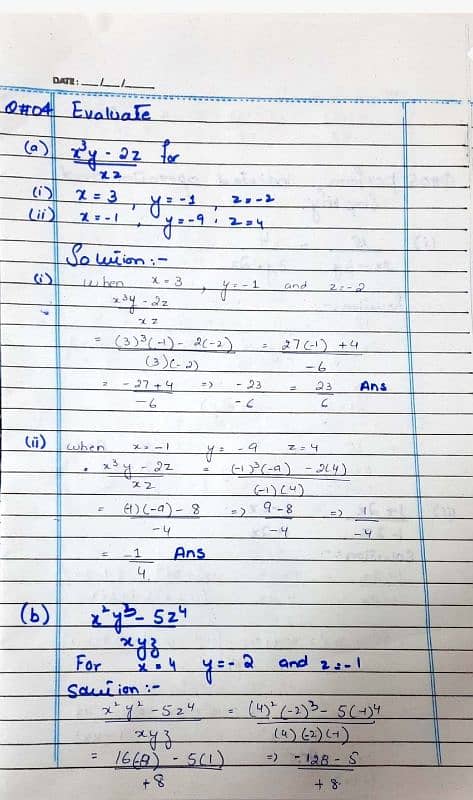 DATE: __/__/____
Q#04 Evaluate
(a) x³y - 2z / xz for
(i) x = 3 , y = -1 , z = -2
(ii) x = -1 , y = -9 , z = 4
Solution :-
(i) when x = 3 , y = -1 and z = -2
x³y - 2z / xz
= (3)³(-1) - 2(-2) / (3)(-2) = 27(-1) + 4 / -6
= -27 + 4 / -6 => -23 / -6 = 23 / 6 Ans
(ii) when x = -1 y = -9 z = 4
x³y - 2z / xz = (-1)³(-9) - 2(4) / (-1)(4)
= (-1)(-9) - 8 / -4 => 9 - 8 / -4 => 1 / -4
= -1 / 4 Ans
(b) x²y³ - 5z⁴ / xyz
For x = 4 y = -2 and z = -1
Solution :-
x²y² - 5z⁴ / xyz = (4)²(-2)³ - 5(-1)⁴ / (4)(-2)(-1)
= 16(-8) - 5(1) / +8 => -128 - 5 / +8